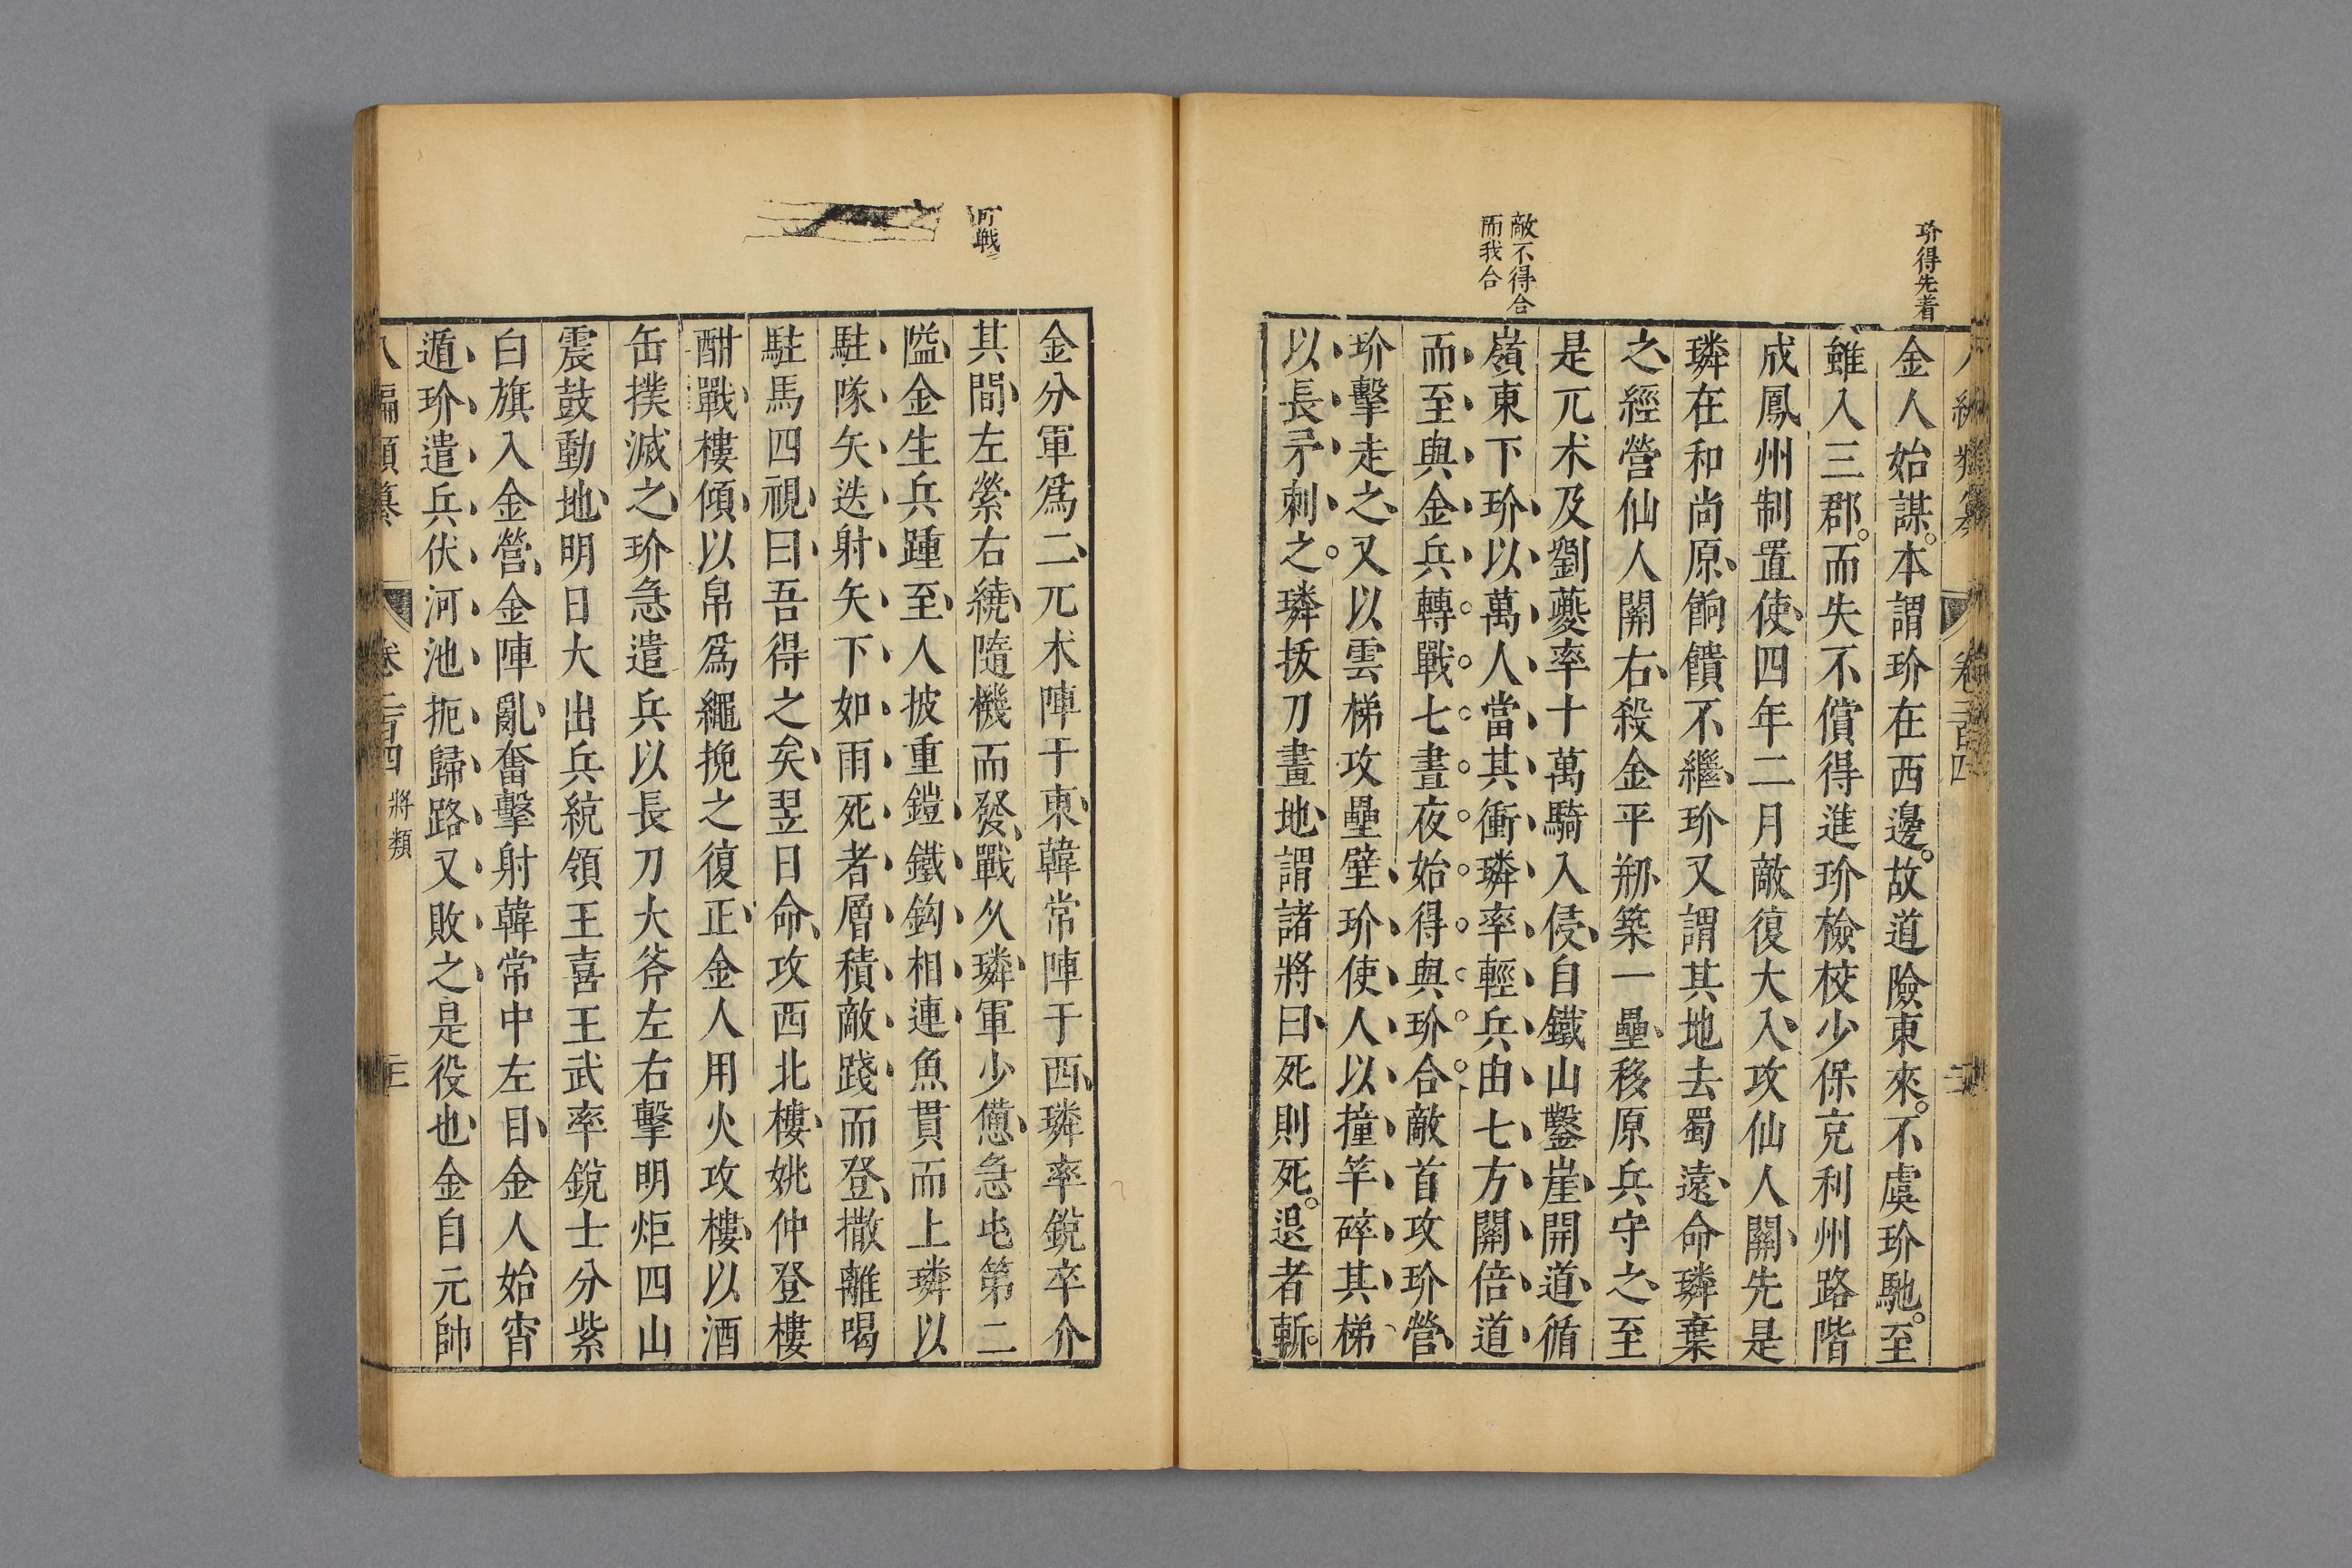 玠得先着
敵不得合
而我合
金人始謀。本謂玠在西邊。故道險東來。不虞玠馳。至
雖入三郡。而失不償得進玠檢校少保充利州路階
成鳳州制置使、四年二月敵復大入、攻仙人關、先是
璘在和尚原、餉饋不繼、玠又謂其地去蜀遠、命璘棄
之、經營仙人關右、殺金平、剏築一壘、移原兵守之、至
是兀术及劉夔率十萬騎入侵、自鐵山鑿崖、開道、循
嶺東下、玠以萬人當其衝、璘率輕兵、由七方關倍道
而至、與金兵轉戰七晝夜始得與玠合敵首攻玠營、
玠擊走之、又以雲梯攻壘壁、玠使人以撞竿碎其梯
以長矛刺之。璘拔刀畫地、謂諸將曰、死則死。退者斬。
可戰
金分軍爲二、兀术陣于東、韓常陣于西、璘率銳卒介
其間、左縈右繞、隨機而發、戰久璘軍少憊、急屯第二
隘、金生兵踵至、人披重鎧、鐵鈎相連、魚貫而上璘以
駐隊、矢迭射、矢下如雨、死者層積、敵踐而登、撒離喝
駐馬四視、曰、吾得之矣、翌日命、攻西北樓、姚仲登樓
酣戰、樓傾、以帛爲繩挽之復正、金人用火攻樓、以酒
缶撲滅之、玠急遣兵以長刀大斧左右擊明炬四山
震鼓動地、明日大出兵統領王喜王武率銳士分紫
白旗入金營、金陣亂、奮擊射韓常中左目、金人始宵
遁、玠遣兵伏河池扼歸路、又敗之、是役也、金自元帥
八編類纂
卷二百四
將類